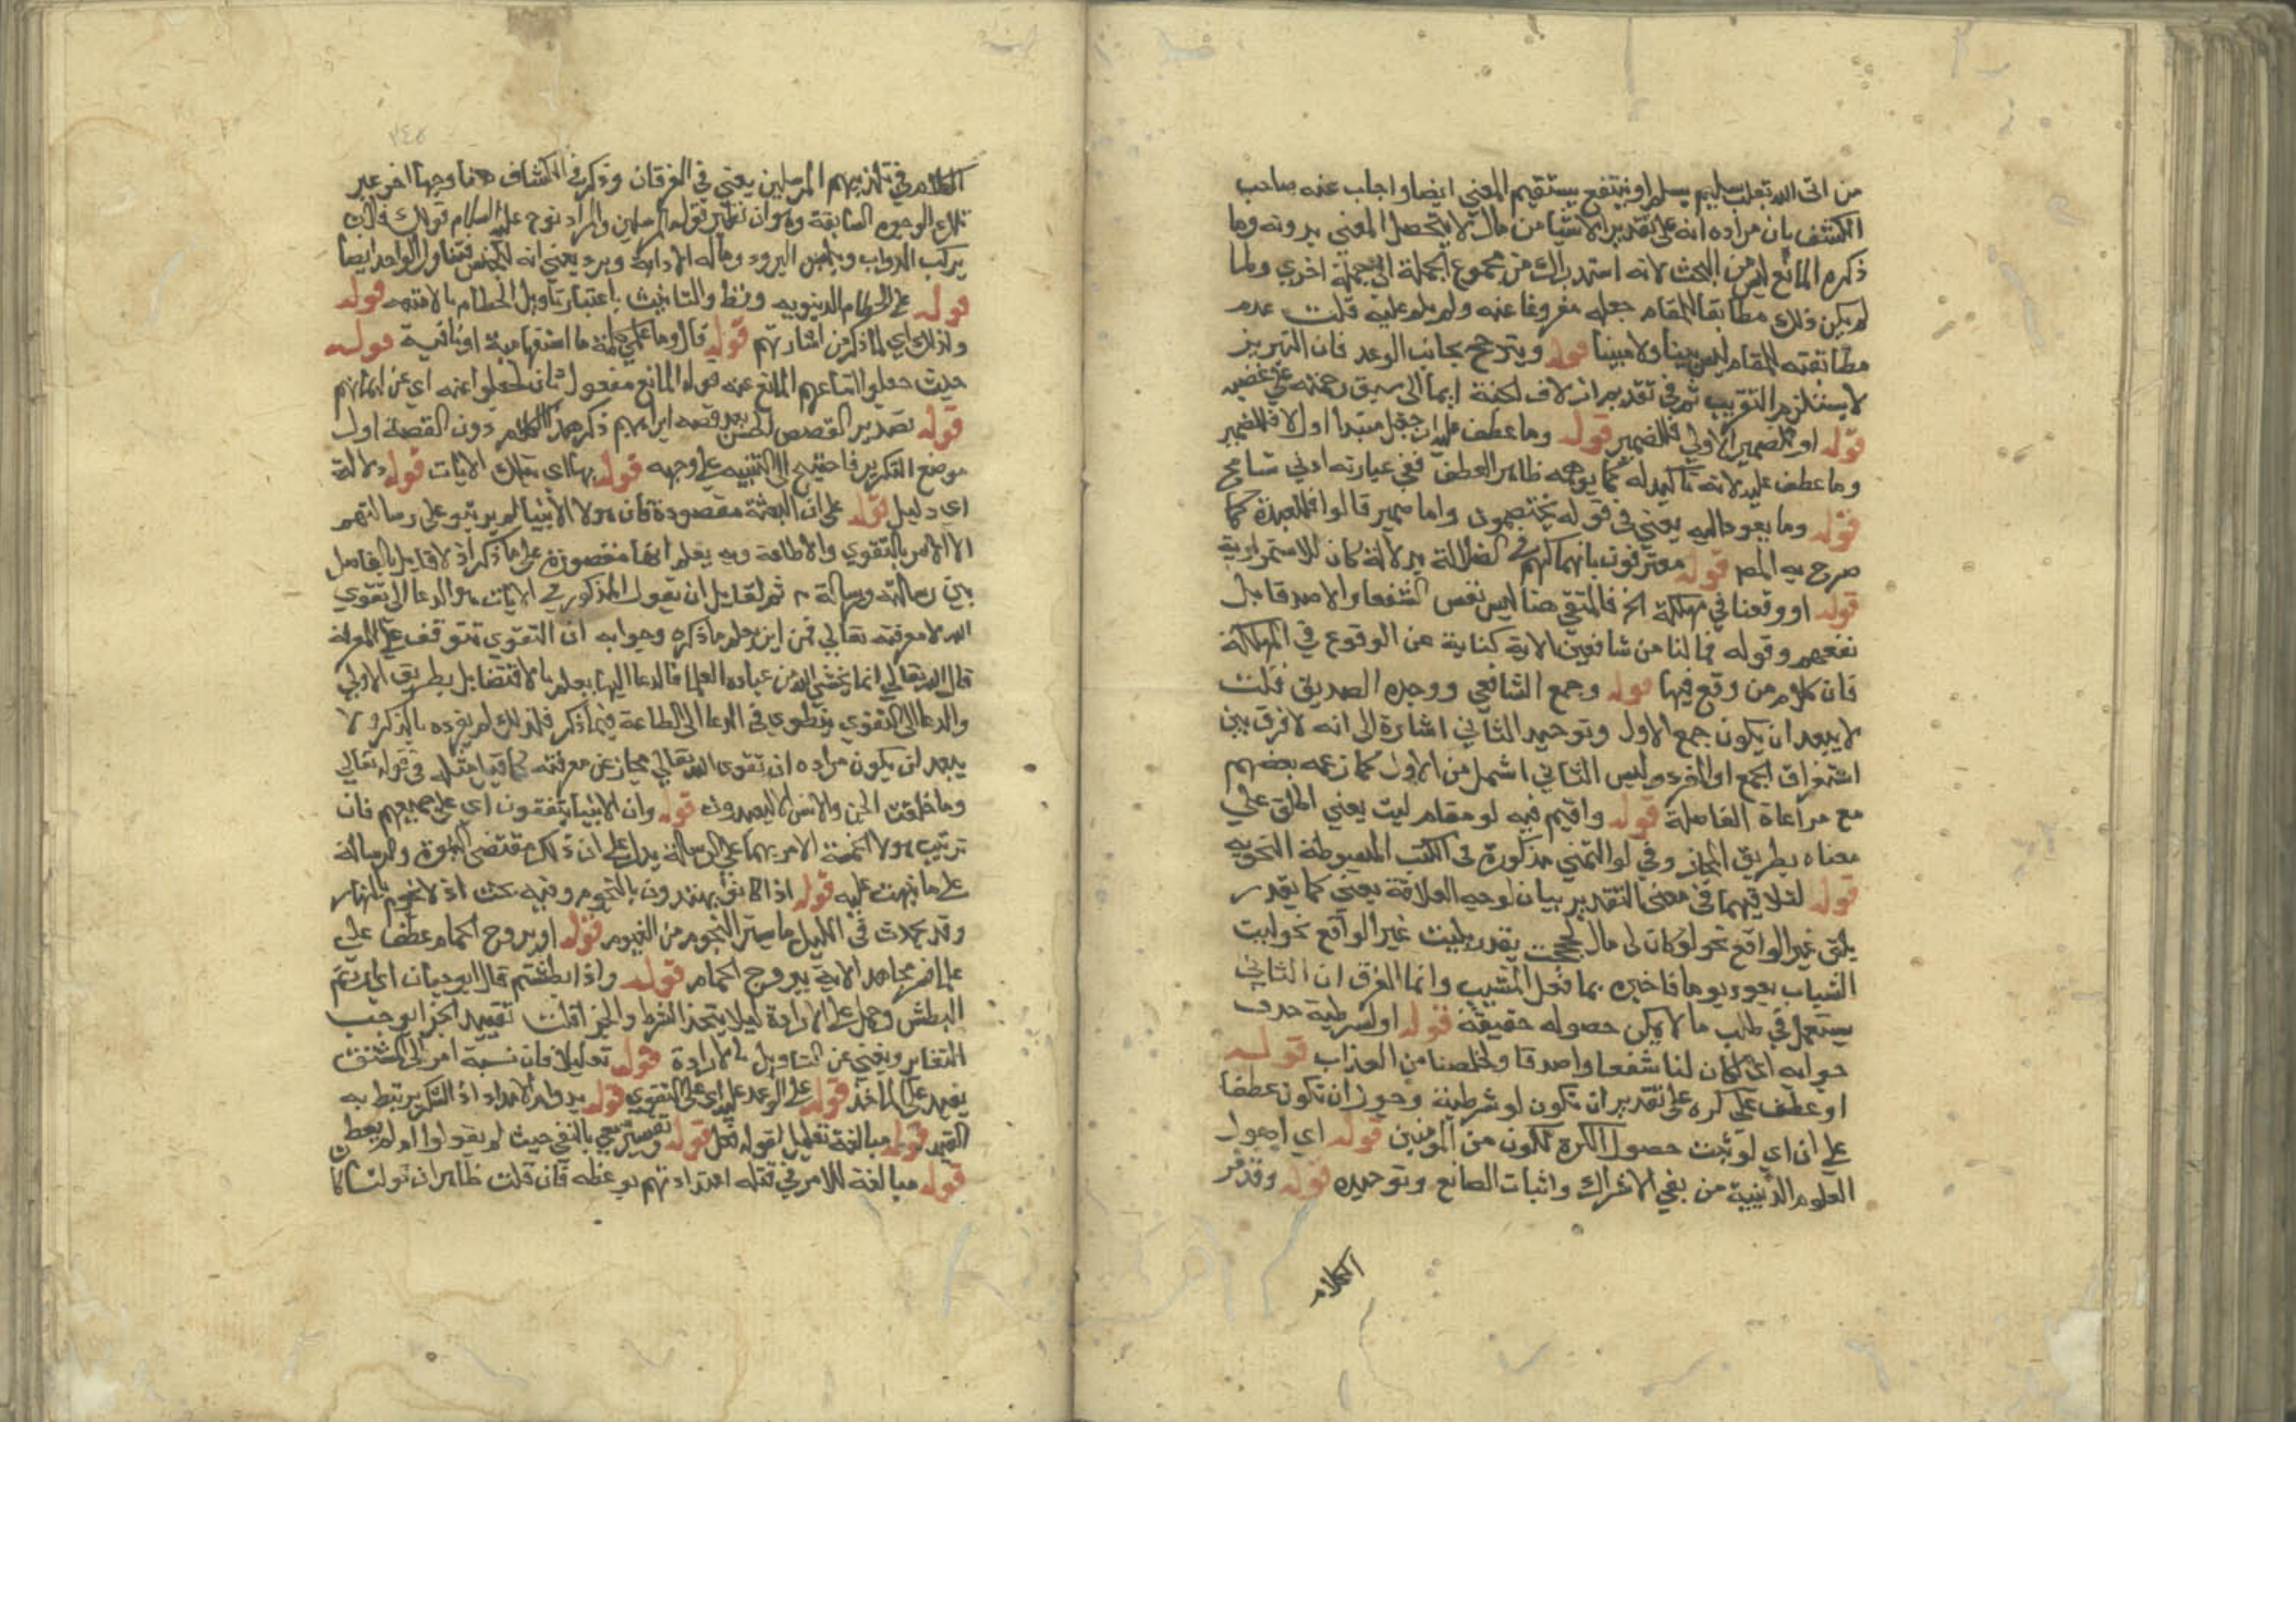 من اتى الله بقلب سليم يسلم او ينتفع يستقيم المعني ايضا واجاب عنه صاحب
الكشف بان مراده انه على تقدير الاشيا من مال لا يتحصل المعني بدونه وما
ذكره المانع ليس من البحث لانه استدراك من مجموع الجملة الى جملة اخري ولما
لم يكن ذلك مطابقا للمقام جعله مفروغا عنه ولم يلم عليه قلت عدم
مطابقته للمقام ليس بينا ولا مبينا قوله ويترجح بجانب الوعد فان التبريز
لا يستلزم التقريب ثم في تقديم ازلاف الجنة ايما الى سبق رحمته على غضبه
قوله او للضمير الاولي فللضمير قوله وما عطف عليه ان جعل مبتدا اولا فللضمير
وما عطف عليه لانه تاكيد له كما يوهمه ظاهر العطف ففي عبارته ادني تسامح
قوله وما يعود اليه يعني في قوله يختصمون واما ضمير قالوا فللعبدة كما
صرح به المص قوله معترفون بانهماكهم في الضلالة بدلالة كان للاستمرارية
قوله او وقعنا في مهلكة الخ فالمنفي هنا ليس نفس الشفعا والاصدقا بل
نفعهم وقوله فما لنا من شافعين الاية كناية عن الوقوع في المهلكة
فان كلام من وقع فيها قوله وجمع الشافعي ووحده الصديق قلت
لا يبعد ان يكون جمع الاول وتوحيد الثاني اشارة الى انه لا فرق بين
استغراق الجمع او المفرد وليس الثاني اشمل من الاول كما زعمه بعضهم
مع مراعاة الفاصلة قوله واقيم فيه لو مقام ليت يعني اطلق علي
معناه بطريق المجاز وفي لو التمني مذكورة في الكتب المبسوطة النحويه
قوله لتلاقيهما في معنى التقدير بيان لوجه العلاقة يعني كما يقدر
يلو غير الواقع نحو لو كان لي مال لحججت يقدر بليت غير الواقع نحو ليت
الشباب يعود يوما فاخبره بما فعل المشيب وانما الفرق ان الثاني
يستعمل في طلب ما لا يمكن حصوله حقيقة قوله او لشرطية حذف
جوابه اي لكان لنا شفعا واصدقا ولخلصنا من العذاب قوله
او عطف على كره على تقدير ان تكون لو شرطية وجوز ان تكون عطفا
على ان اي لو ثبت حصول الكرة فنكون من المومنين قوله اي اصول
العلوم الدينية من نفي الاشراك واثبات الصانع وتوحيده قوله وقد مر
الكلام
الكلام في تكذيبهم المرسلين يعني في الفرقان وذكر في الكشاف هنا وجها اخر غير
تلك الوجوه السابقة وهو ان نظير قوله المرسلين والمراد نوح عليه السلام قولك فلان
يركب الدواب ويلبس البرود وماله الا دابة وبرد يعني انه للجنس فيتناول الواحد ايضا
قوله على الحطام الدنيويه وفظ والتانيث باعتبار تاويل الحطام بالامتعه قوله
ولذلك اي لما ذكر من اشارتهم قوله قال وما علمي كلمة ما استفهامية او نافية قوله
حيث جعلوا اتباعهم المانع عنه قوله المانع مفعول ثان لجعلوا عنه اي عن ايمانهم
قوله تصدير القصص لحسن بعد قصه ابراهيم ذكر هذا الكلام دون القصة اول
موضع التكرير فاحتيج الى التنبيه على وجهه قوله بها اي بتلك الايات قوله دلالة
اي دليل قوله على ان البعثة مقصودة فان هولا الانبيا لم يرتبو على رسالتهم
الا الامر بالتقوي والاطاعة وبه يعلم انها مقصورة على ما ذكر اذ لا قايل بالفاصل
بين رسالة ورسالة ثم لقايل ان يقول المذكور في الايات هو الدعا الى تقوي
الله لا معرفته تعالي فمن اين يعلم ما ذكره وجوابه ان التقوي تتوقف على المعرفة
قال الله تعالي انما يخشي الله من عباده العلما فالدعا اليها يعلم بالاقتضا بل بطريق الاولي
والدعا الى التقوي ينطوي في الدعا الى الطاعة فيما ذكر فلذلك لم يفرده بالذكر ولا
يبعد ان يكون مراده ان تقوى الله تعالي مجاز عن معرفته كما قيل مثله في قوله تعالي
وما خلقت الجن والانس الا ليعبدون قوله وان الانبيا متفقون اي على جميعهم فان
ترتيب هولا الخمسة الامر بهما على الرسالة يدل على ان ذلك مقتضى النبوة والرسالة
على ما نبهت عليه قوله اذا كانوا يهتدون بالنجوم وفيه بحث اذ لا نجوم بالنهار
وقد يحدث في الليل ما يستر النجوم من الغيوم قوله او بروج الحمام عطف على
علما فسر مجاهد الاية ببروج الحمام قوله واذا بطشتم قال ابو حيان اي اردتم
البطش وحمل على الارادة ليلا يتحد الشرط والجزا قلت تقييد الجزا يوجب
التغاير ويغني عن التاويل بالارادة قوله تعليلا فان نسبة امر الى المشتق
يفيد علة الماخذ قوله على الوعد عليه اي على التقوي قوله بدوام الامداد اذ الشكر يرتبط به
القيد قوله مبالغة تعليل لقوله قوله وتفسير يعني بالنفي حيث لم يقولوا ام لم تعظ
قوله مبالغة للامر في قلة اعتدادهم بوعظه فان قلت ظاهر ان قولنا